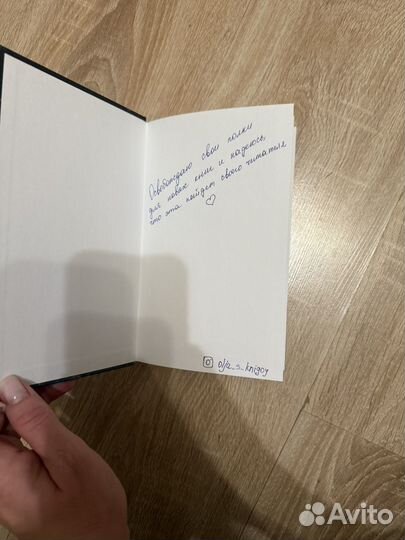 Освобождаю свои полки
для новых книг и надеюсь,
что эта найдет своего читателя
♡
olja_s_knigoy
Avito